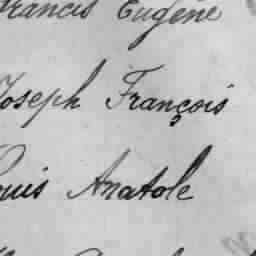 Francis Eugène
Joseph François
Louis Anatole